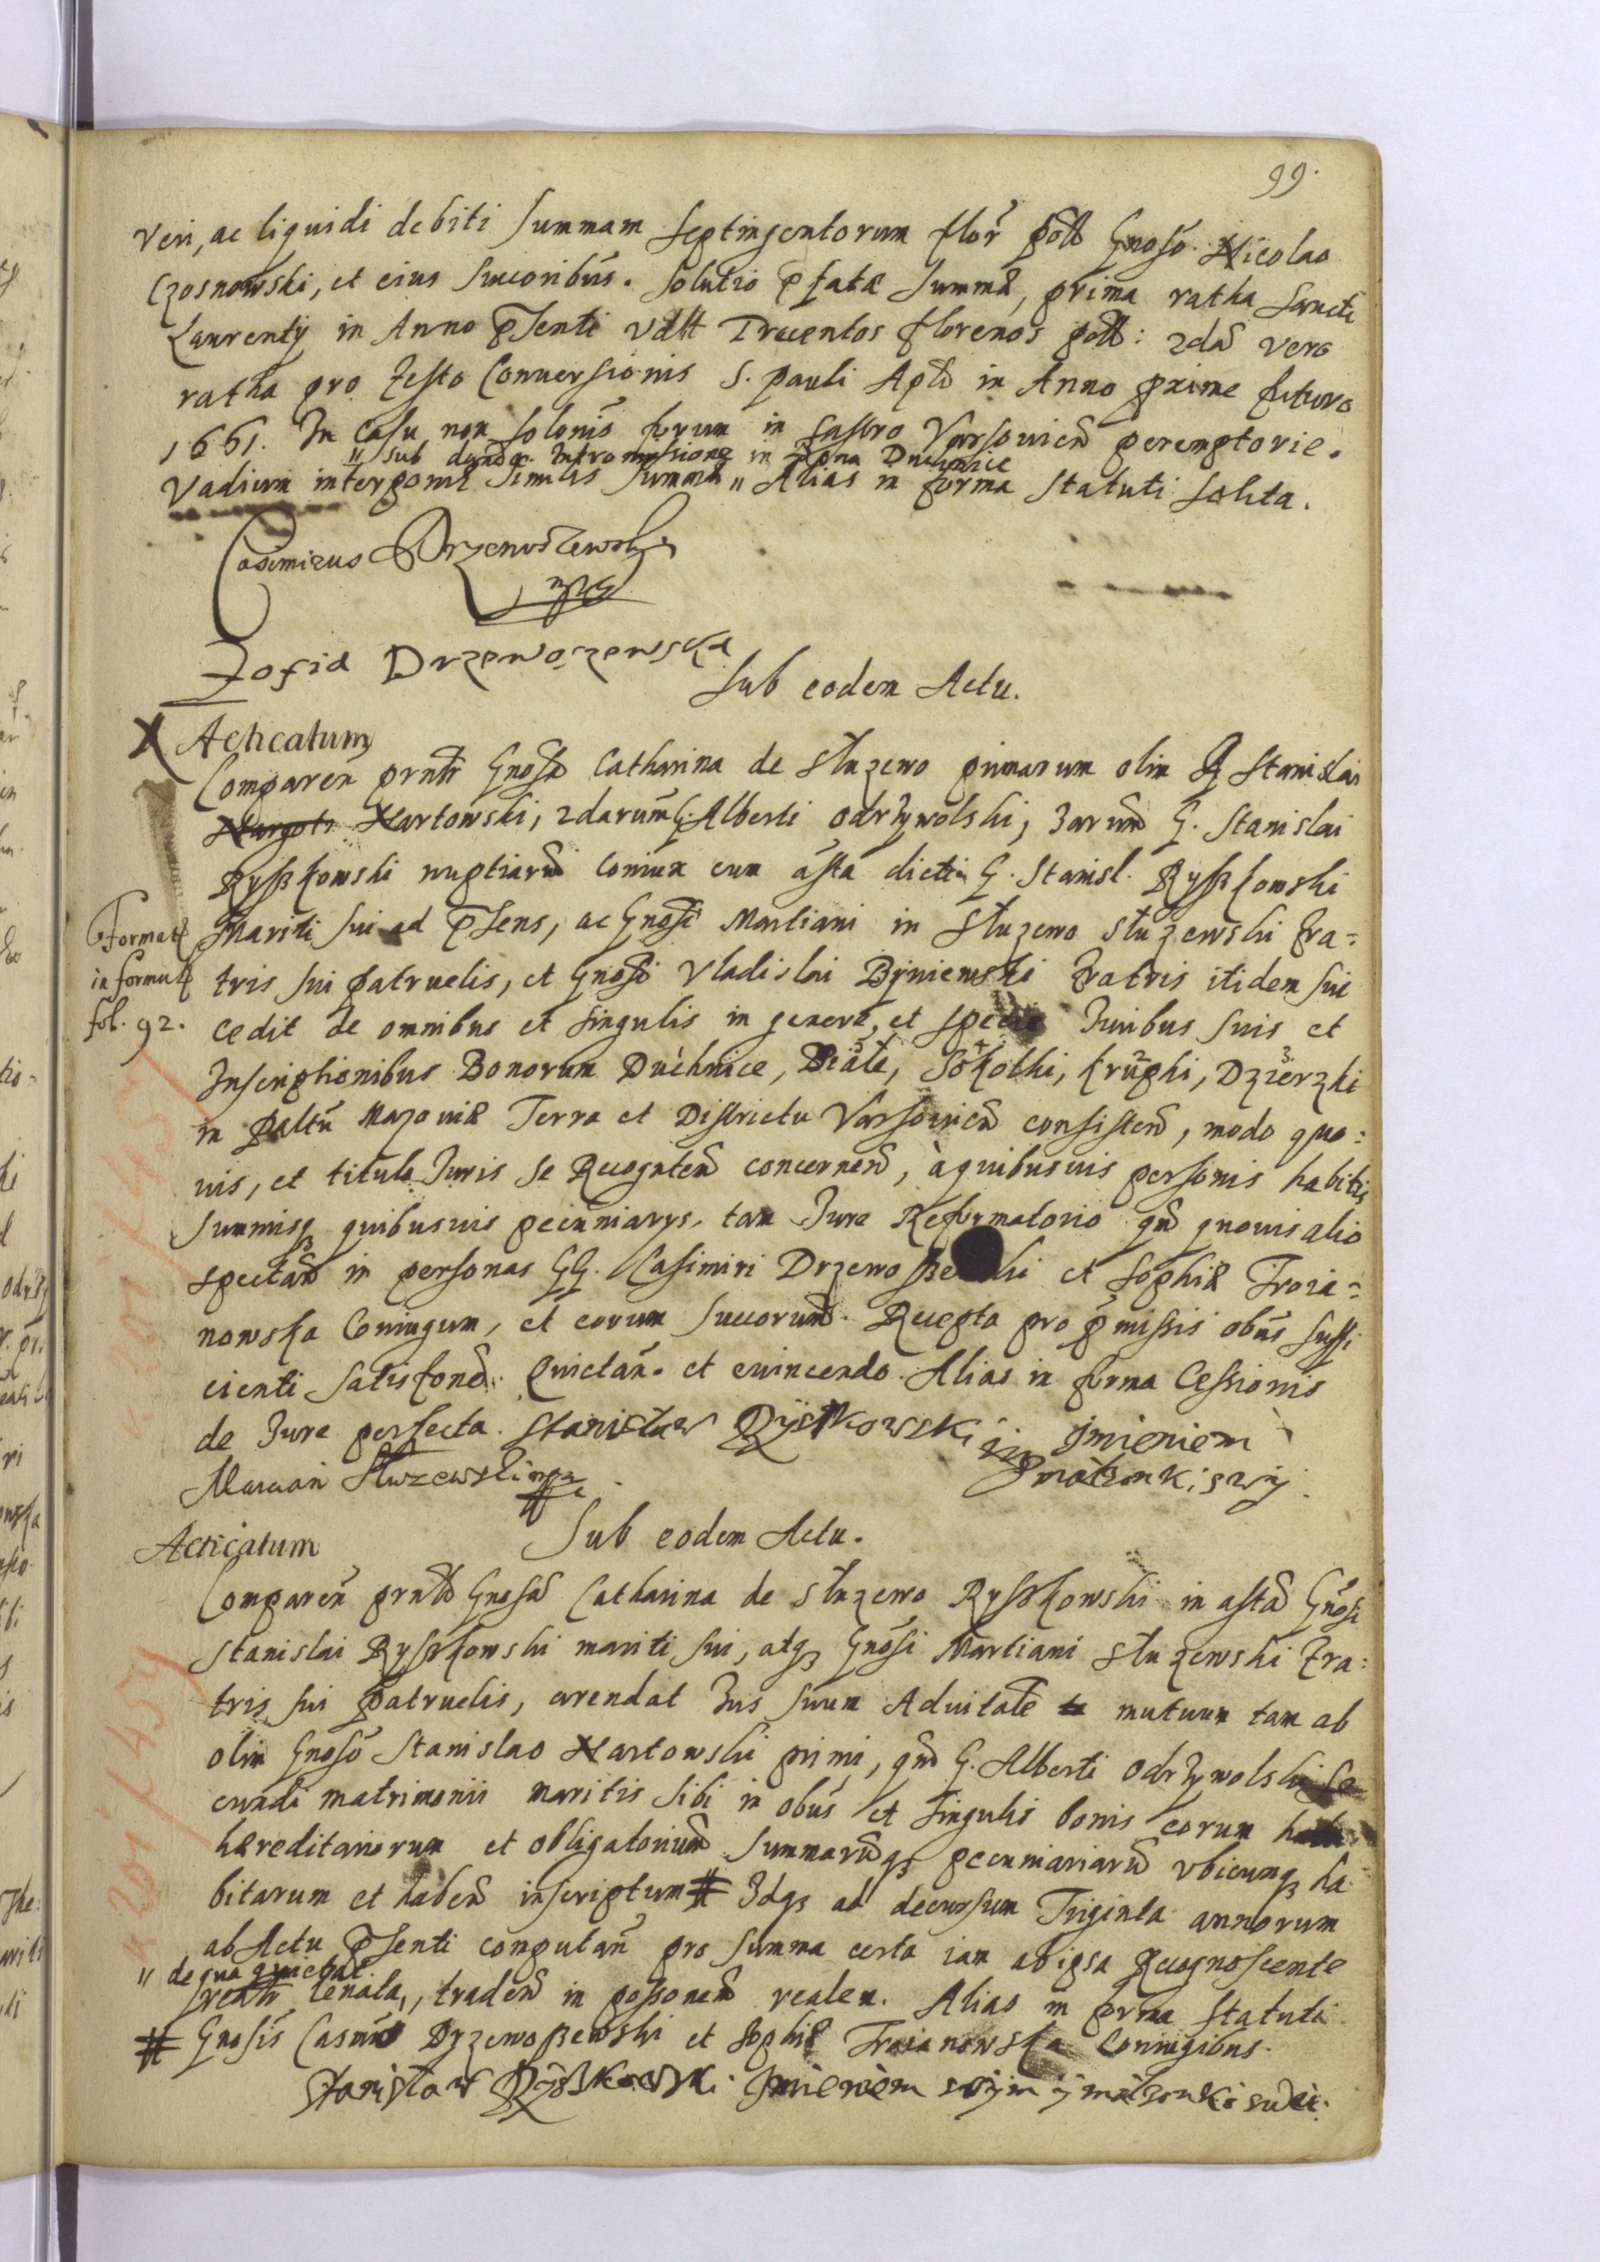 99.
veri, ac liquidi debiti summam septingentorum flor̃ poll̃ Gnoso Nicolao
Czosnowski, et eius succoribus. Solutio pfatæ summæ, prima ratha Sancti
Laurentÿ in Anno pſenti vdlt Trecentos florenos poll: 2da vero
ratha pro festo Conversionis S. Pauli Apli in Anno proxime futuro
1661. In casu non solonis forum in Castro Varsovien peremptorie.
" sub danda Intromissione in Bona Duchnice
Vadium interponit similis summæ " Alias in forma statuti solita.
Casimirus Drzewoszewski
mp
Zofia Drzewoszewska
Sub eodem Actu.
X Acticatum
Comparen prntr Gnosa Catharina de Służewo primarum olim G Stanislai
Nartowski, 2darum G. Alberti Odrzywolski, 3arum G. Stanislai
Ryszkowski nuptiarum coniux cum assta dicti G. Stanisl. Ryszkowski
Mariti sui ad pſens, ac Gnosi Martiani in Służewo Służewski fra=
Format
in formul
fol. 92.
tris sui patruelis, et Gnosi Vladislai Byniewski fratris itidem sui
cedit de omnibus et singulis in genere, et specie Iuribus suis et
Inscriptionibus Bonorum Duchnice, Białe, Sokołki, Krupki, Dzierzki
in Paltu Mazoviæ Terra et Districtu Varsovien consisten, modo quo=
vis, et titulo Iuris se Recognten concernen, à quibusvis personis habitis
summisq quibusvis pecuniarys, tam Iure Reformatorio qm quovis alio
spectan in personas GG. Casimiri Drzewosze ski et Sophiæ Troia=
nowska Coniugum, et eorum succorum. Recepta pro pmissis obus suffi
cienti satisfone. Quietan. et evincendo. Alias in forma Cessionis
de Iure perfecta. Stanisław Ryszkowski imieniem
małzonki swÿ
Marcian Słuzewski mp
Acticatum
Sub eodem Actu.
Comparen prntr Gnosa Catharina de Służewo Ryszkowski in assta Gnosi
Stanislai Ryszkowski mariti sui, atq Gnosi Martiani Służewski fra=
tris sui patruelis, arendat Ius suum Advitale mutuum tam ab
olim Gnoso Stanislao Nartowski primi, qm G. Alberti Odrzywolski se
cundi matrimonii maritis sibi in obus et singulis bonis eorum
hæreditariorum et obligatorium summarumq pecuniariarum ubicunq ha
bitarum et haben inscriptum # Idq ad decursum Triginta annorum
ab Actu pſenti computan pro summa certa iam ab ipsa Recognoscente
" de qua quietat
realtr levata,, traden in possonem realem. Alias in forma statuti
# Gnosis Casmro Drzewoszewski et Sophiæ Troianowska Coniugibus.
Stanisław Ryszkowski imieniem swÿm ÿ małzonki swei.